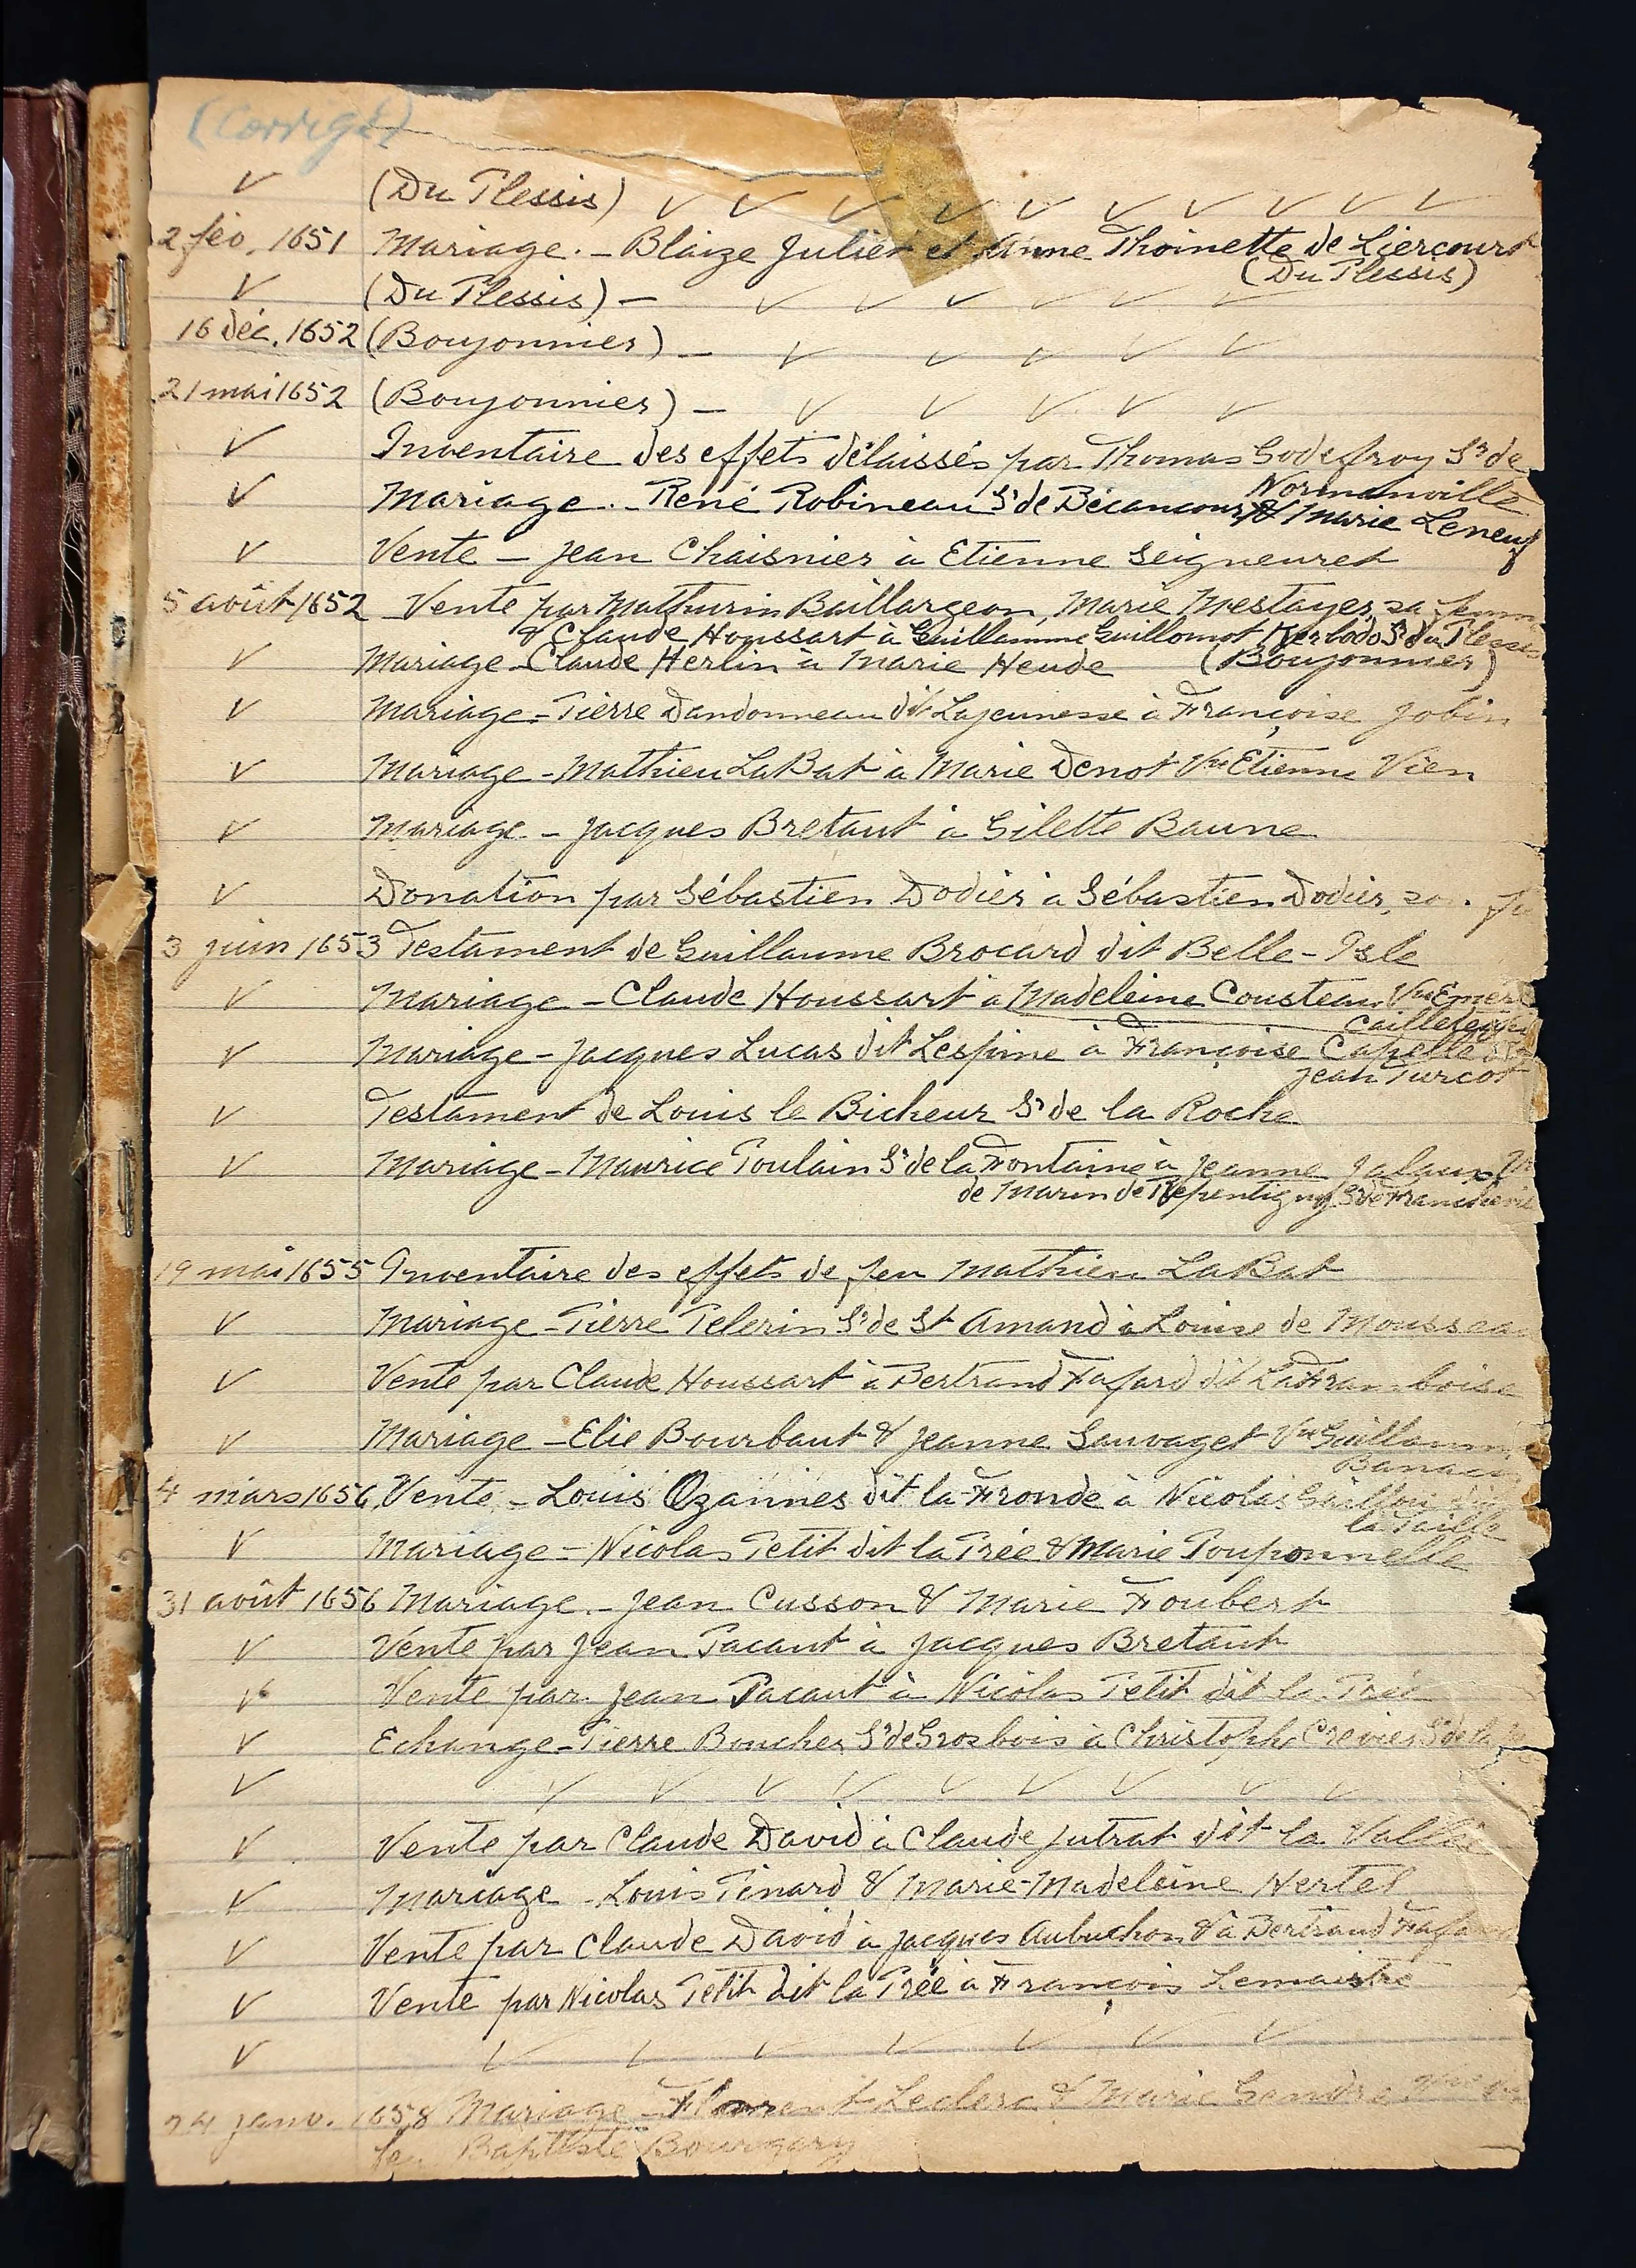 (Corrigé)
✓ (Du Plessis) ✓ ✓ ✓ ✓ ✓ ✓ ✓ ✓ ✓ ✓
2 fév. 1651 Mariage. - Blaize Julien et Anne Thoinette de Liercourt
(Du Plessis)
✓ (Du Plessis) - ✓ ✓ ✓ ✓ ✓ ✓
16 déc. 1652 (Boujonnier) - ✓ ✓ ✓ ✓ ✓
21 mai 1652 (Boujonnier) - ✓ ✓ ✓ ✓ ✓
✓ Inventaire des effets délaissés par Thomas Godefroy Sr de
Normanville
✓ Mariage. - René Robineau Sr de Bécancour & Marie Leneuf
✓ Vente - Jean Chaisnier à Etienne Seigneuret
5 août 1652 Vente par Mathurin Baillargeon, Marie Mestayer, sa femme
& Claude Houssart à Guillaume Guillomot Kerbodo Sr du Plessis
✓ Mariage - Claude Herlin à Marie Heude (Boujonnier)
✓ Mariage - Pierre Dandonneau dit Lajeunesse à Françoise Jobin
✓ Mariage - Mathieu LaBat à Marie Denot Vve Etienne Vien
✓ Mariage - Jacques Bretaut à Gilette Baune
✓ Donation par Sébastien Dodier à Sébastien Dodier,
3 juin 1653 Testament de Guillaume Brocard dit Belle-Isle
✓ Mariage - Claude Houssart à Madeleine Cousteau Vve
✓ Mariage - Jacques Lucas dit Lespine à Françoise Capelle
Jean Turcot
✓ Testament de Louis le Bicheur Sr de la Roche
✓ Mariage - Maurice Poulain Sr de la Fontaine à Jeanne Jalaux
de Marin de Repentigny Sr de
19 mai 1655 Inventaire des effets de feu Mathieu LaBat
✓ Mariage - Pierre Pelerin Sr de St Amand à Louise de
✓ Vente par Claude Houssart à Bertrand Fafard dit
✓ Mariage - Elie Bourbaut & Jeanne Sauvaget Vve Guillaume
4 mars 1656 Vente - Louis Ozannes dit la Fronde à Nicolas
la Taille
✓ Mariage - Nicolas Petit dit la Prée & Marie Pouponnelle
31 août 1656 Mariage. - Jean Cusson & Marie Foubert
✓ Vente par Jean Pacaut à Jacques Bretaut
✓ Vente par Jean Pacaut à Nicolas Petit dit la Prée
✓ Echange - Pierre Boucher Sr de Grosbois à Christophe Crevier Sr de la
✓ ✓ ✓ ✓ ✓ ✓ ✓ ✓ ✓ ✓
✓ Vente par Claude David à Claude Jutrat dit la Vallée
✓ Mariage - Louis Pinard & Marie-Madeleine Hertel
✓ Vente par Claude David à Jacques Aubuchon & à Bertrand Fafard
✓ Vente par Nicolas Petit dit la Prée à François Lemaistre
✓ ✓ ✓ ✓ ✓ ✓ ✓ ✓
24 janv. 1658 Mariage - Florent Leclerc & Marie Gendre
Baptiste Bourgery